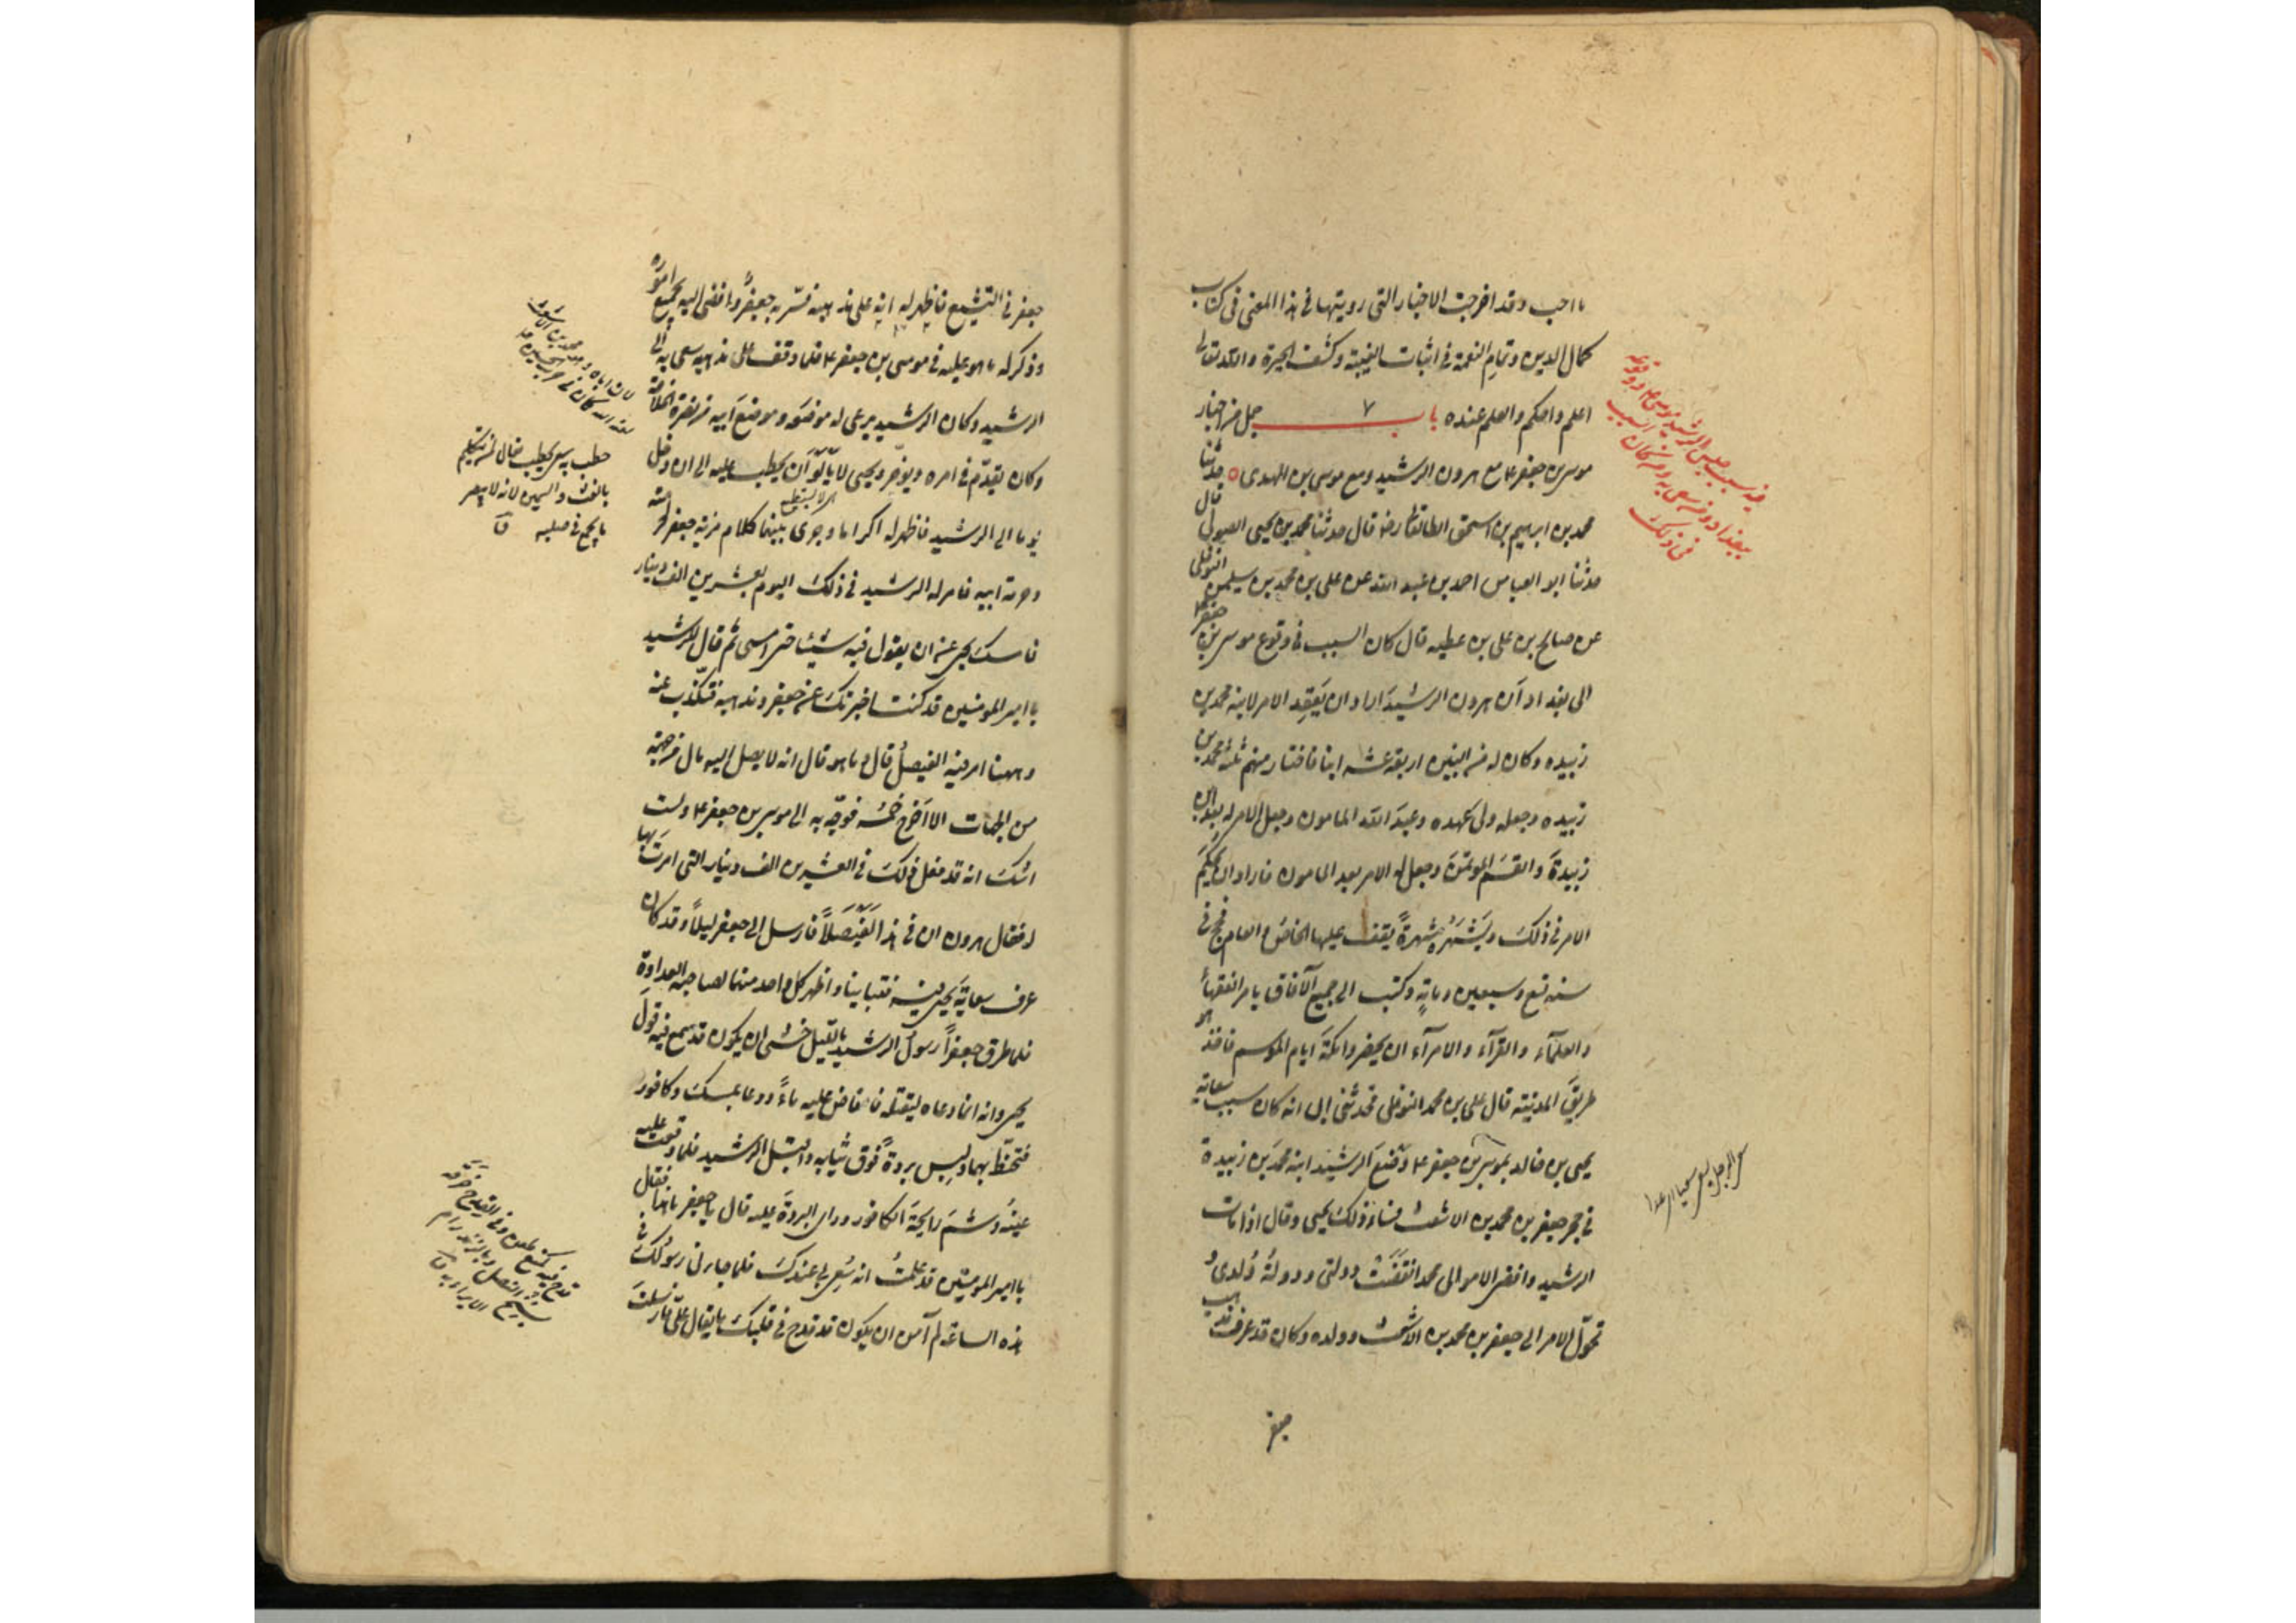 ما احب وقد اخرجت الاخبار التى رويتها فى هذا المعنى فى كتاب
كمال الدين وتمام النعمة فى اثبات الغيبة وكشف الحيرة والله تعالى
اعلم واحكم والعلم عنده باب ٧ جمل من اخبار
موسى بن جعفر ع مع هرون الرشيد ومع موسى بن المهدى حدثنا
محمد بن ابرهيم بن اسحق الطالقانى رضه قال حدثنا محمد بن يحيى الصولى قال
حدثنا ابو العباس احمد بن عبد الله عن على بن محمد بن سليمن النوفلى
عن صالح بن على بن عطيه قال كان السبب فى وقوع موسى بن جعفر ع
الى بغداد ان هرون الرشيد اراد ان يعقد الامر لابنه محمد بن
زبيده وكان له من البنين اربعة عشر ابنا فاختار منهم ثلثة محمد بن
زبيده وجعله ولى عهده وعبد الله المامون وجعل الامر له بعد ابن
زبيدة والقسم الموتمن وجعل له الامر بعد المامون فاراد ان يحكم
الامر فى ذلك ويشهره شهرة يقف عليها الخاص والعام فحج فى
سنه تسع وسبعين وماية وكتب الى جميع الآفاق يامر الفقهاء
والعلمآء والقرآء والامرآء ان يحضروا مكة ايام الموسم فاخذ هو
طريق المدينة قال على بن محمد النوفلى فحدثنى ابى انه كان سبب سعاية
يحيى بن خالد بموسى بن جعفر ع وضع الرشيد ابنه محمد بن زبيدة
فى حجر جعفر بن محمد بن الاشعث فساء ذلك يحيى وقال اذا مات
الرشيد وافضى الامر الى محمد انقضت دولتى ودولة ولدى و
تحول الامر الى جعفر بن محمد بن الاشعث وولده وكان قد عرف مذهب
جعفر
جعفر فى التشيع فاظهر له انه على مذهبه فسر به جعفر وافضى اليه بجميع اموره
وذكر له ما هو عليه فى موسى بن جعفر ع فلما وقف على مذهبه سعى به الى
الرشيد وكان الرشيد يرعى له موضعه وموضع ابيه من نصرة الخلافة
وكان يقدم فى امره ويوخر ويحيى لا يالو ان يحطب عليه الى ان دخل
يوما الى الرشيد فاظهر له اكراما وجرى بينهما كلام مزية جعفر لحرمته
وحرمة ابيه فامر له الرشيد فى ذلك اليوم بعشرين الف دينار
فامسك يحيى عن ان يقول فيه شيئا حتى امسى ثم قال للرشيد
يا امير المومنين قد كنت اخبرتك عن جعفر ومذهبه فتكذب عنه
وههنا امر فيه الفيصل قال وما هو قال انه لا يصل اليه مال من جهة
من الجهات الا اخرج خمسه فوجه به الى موسى بن جعفر ع ولست
اشك انه قد فعل ذلك فى العشرين الف دينار التى امرت بها
له فقال هرون ان فى هذا لفيصلا فارسل الى جعفر ليلا وقد كان
عرف سعاية يحيى به فتباينا واظهر كل واحد منهما لصاحبه العداوة
فلما طرق جعفرا رسول الرشيد بالليل خشى ان يكون قد سمع فيه قول
يحيى وانه انما دعاه ليقتله فافاض عليه ماء ودعا بمسك وكافور
فتحنط بهما ولبس بردة فوق ثيابه واقبل الى الرشيد فلما وقعت عليه
عينه وشم رايحة الكافور وراى البردة عليه قال يا جعفر ما هذا فقال
يا امير المومنين قد علمت انه سعى بى عندك فلما جاءنى رسولك فى
هذه الساعة لم آمن ان يكون قد قدح فى قلبك ما يقال على فارسلت